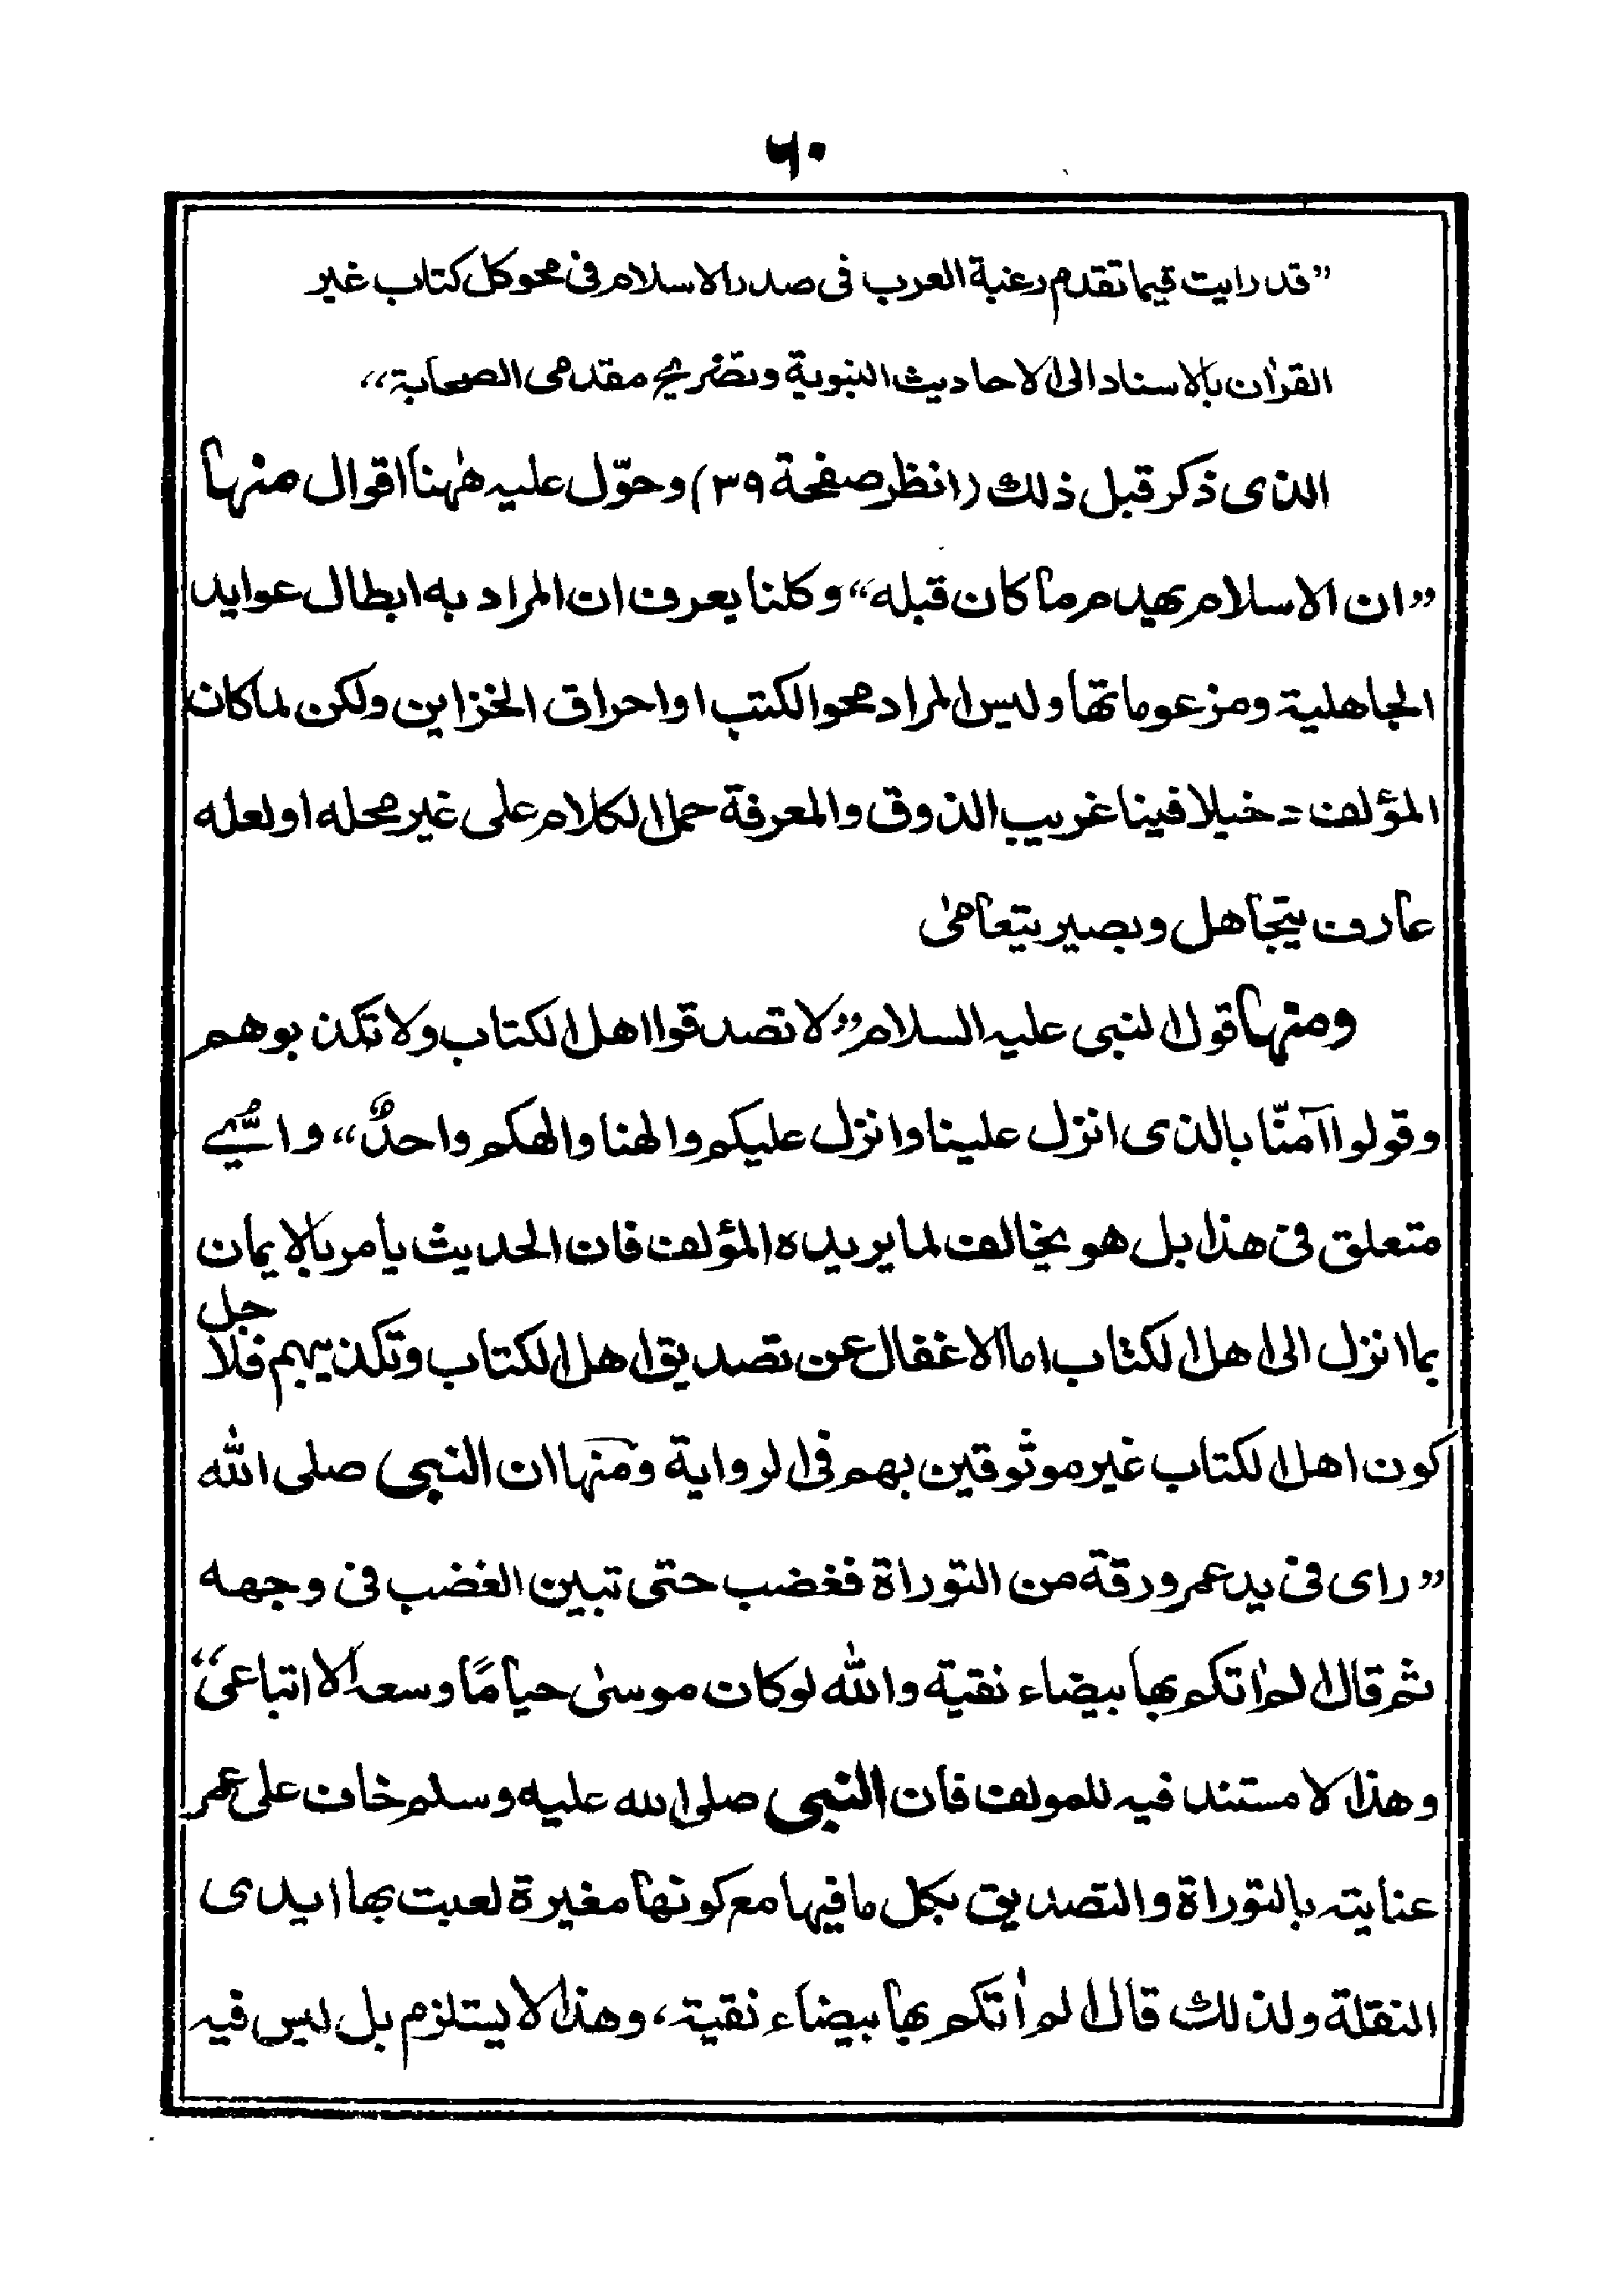 ٦٠
”قد رايت قيما تقدم رغبة العرب فى صدر الاسلام فى محو كل كتاب غير
القرآن بالاسناد الى الاحاديث النبوية وتصريح مقدمى الصحابة“
الذى ذكر قبل ذلك (انظر صفحة ٣٩) وحوّل عليه هٰهنا اقوال منها
”ان الاسلام يهدم ما كان قبله“ وكلنا يعرف ان المراد به ابطال عوايد
الجاهلية ومزعوماتها وليس المراد محو الكتب او احراق الخزاين ولكن لما كان
المؤلف دخيلا فينا غريب الذوق والمعرفة حمل الكلام على غير محله او لعله
عارف يتجاهل وبصير يتعامىٰ
ومنها قول النبى عليه السلام ”لا تصدقوا اهل الكتاب ولا تكذبوهم
وقولوا آمنّا بالذى انزل علينا وانزل عليكم والهنا والهكم واحدٌ“ واىُّ شىء
متعلق فى هذا بل هو يخالف لما يريده المؤلف فان الحديث يامر بالايمان
بما انزل الى اهل الكتاب اما الاغفال عن تصديق اهل الكتاب وتكذيبهم فلاجل
كون اهل الكتاب غير موثوقين بهم فى الرواية ومنها ان النبى صلى الله
”راى فى يد عمر ورقة من التوراة فغضب حتى تبين الغضب فى وجهه
ثم قال الم اٰتكم بها بيضاء نقية والله لو كان موسىٰ حيا مًا وسعه الا اتباعى“
وهذا لا مستند فيه للمولف فان النبى صلى الله عليه وسلم خاف على عمر
عنايته بالتوراة والتصديق بكل ما فيها مع كونها مغيرة لعبت بها ايدى
النقلة ولذلك قال الم اٰتكم بها بيضاء نقية، وهذا لا يستلزم بل ليس فيه